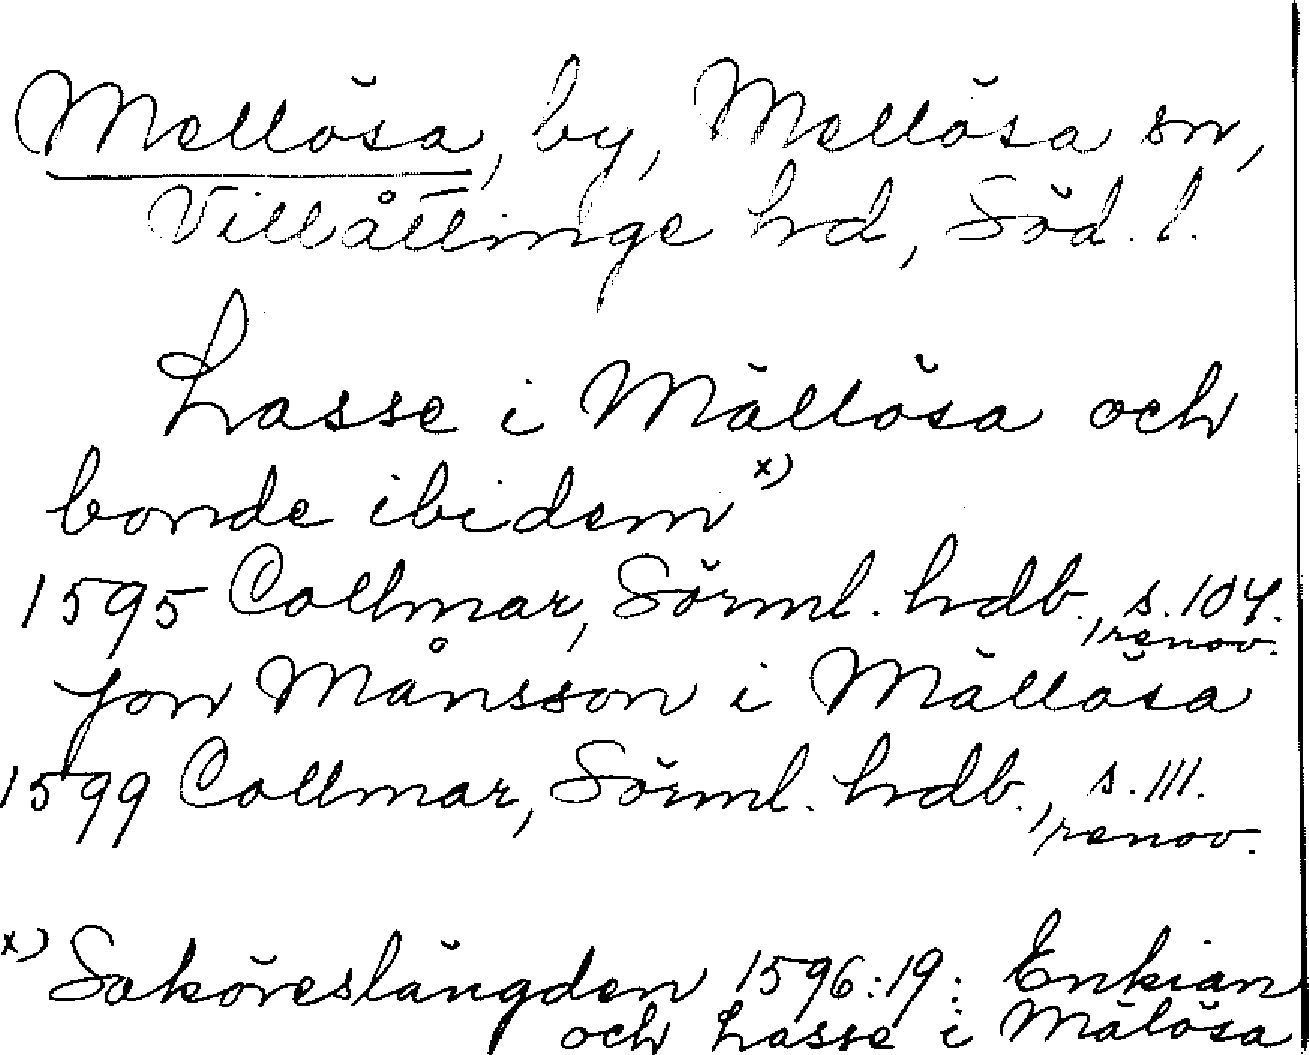 Mellösa, by, Mellösa sn,
Villåttinge hd, Söd. l.
Lasse i Mällösa och
bonde ibidem x)
1595 Collmar, Sörml. hdb., renov. s. 104.
Jon Månsson i Mällösa
1599 Collmar, Sörml. hdb., renov. s. 111.
x) Saköreslängden 1596:19: Enkian
och Lasse i Mälösa